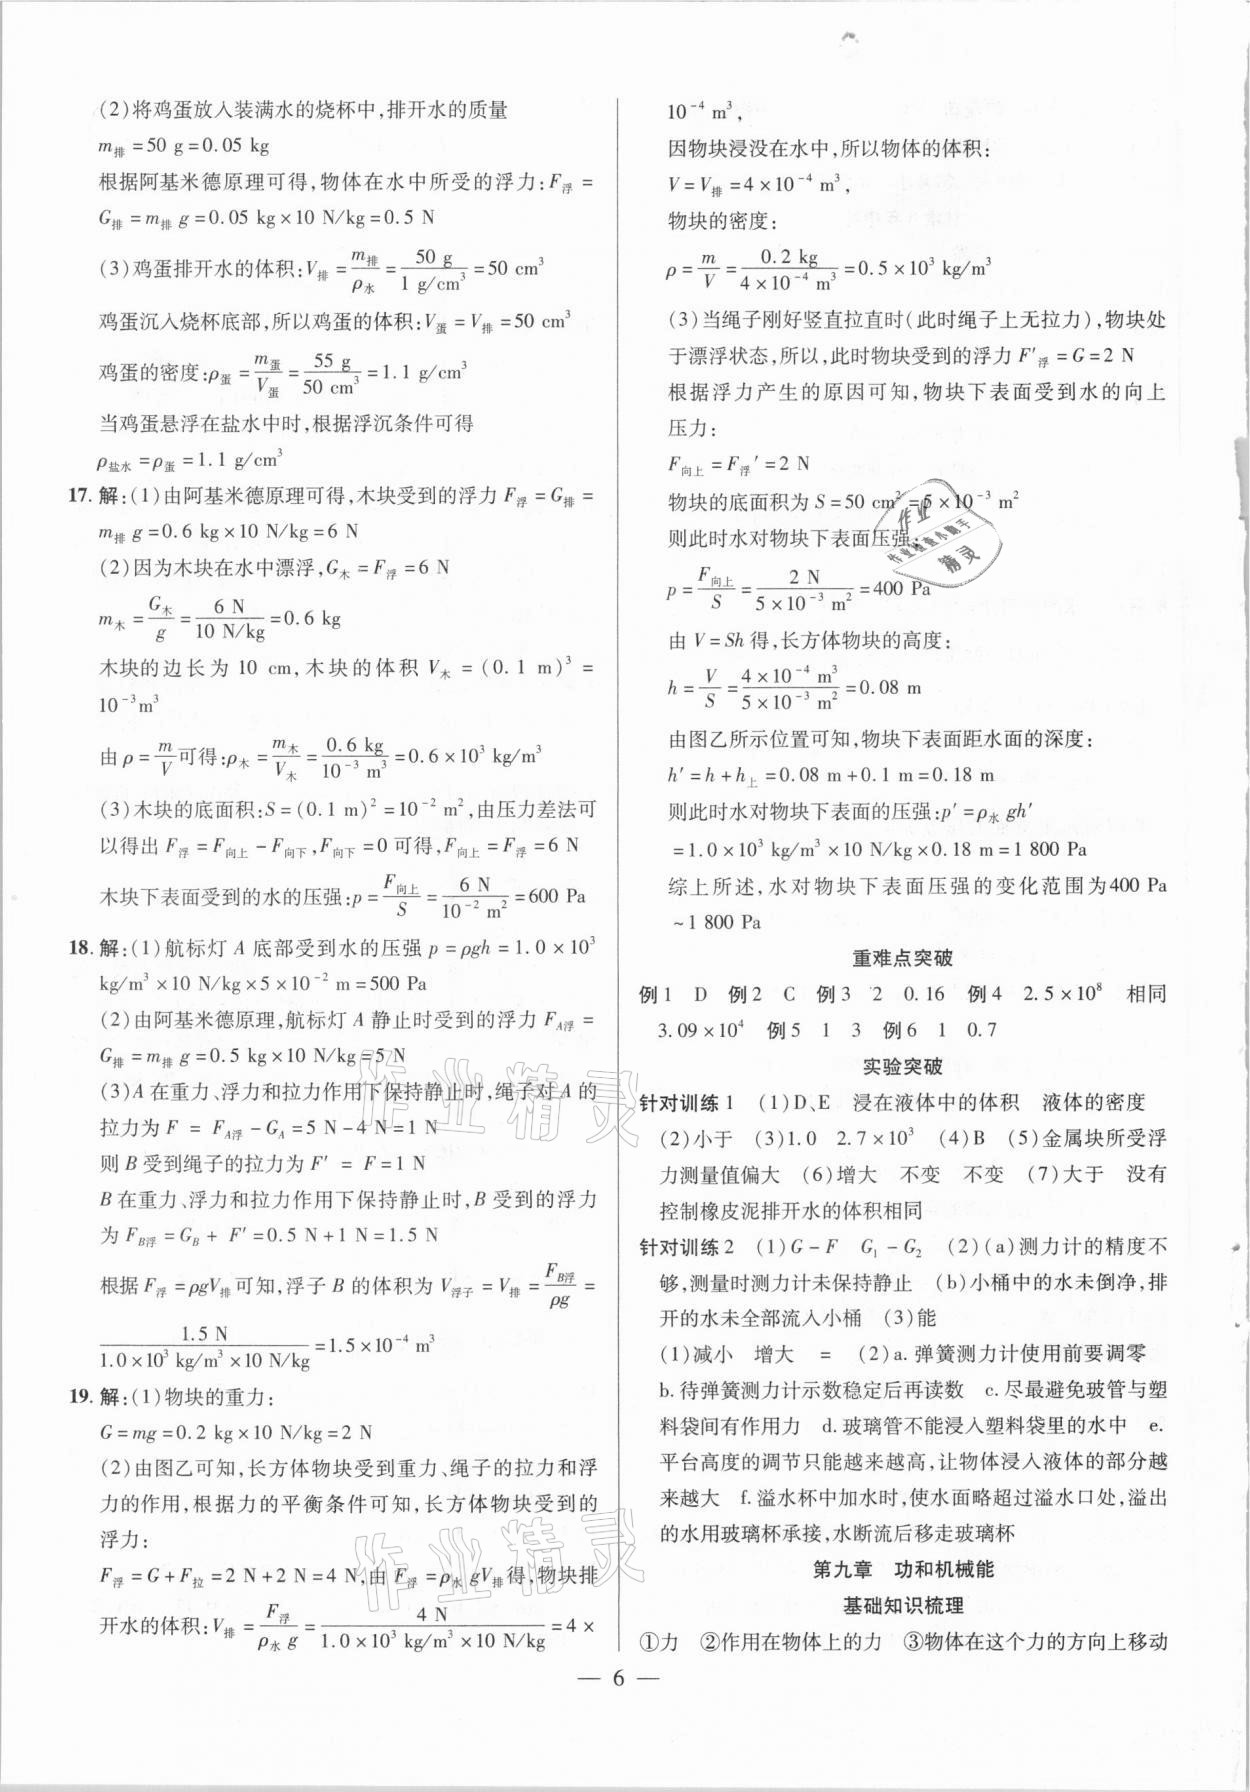 (2)将鸡蛋放入装满水的烧杯中,排开水的质量
m排=50 g=0.05 kg
根据阿基米德原理可得,物体在水中所受的浮力:F浮=
G排=m排 g=0.05 kg×10 N/kg=0.5 N
(3)鸡蛋排开水的体积:V排=m排/ρ水=50 g/1 g/cm³=50 cm³
鸡蛋沉入烧杯底部,所以鸡蛋的体积:V蛋=V排=50 cm³
鸡蛋的密度:ρ蛋=m蛋/V蛋=55 g/50 cm³=1.1 g/cm³
当鸡蛋悬浮在盐水中时,根据浮沉条件可得
ρ盐水=ρ蛋=1.1 g/cm³
17. 解:(1)由阿基米德原理可得,木块受到的浮力F浮=G排=
m排 g=0.6 kg×10 N/kg=6 N
(2)因为木块在水中漂浮,G木=F浮=6 N
m木=G木/g=6 N/10 N/kg=0.6 kg
木块的边长为 10 cm,木块的体积 V木=(0.1 m)³=
10⁻³m³
由ρ=m/V可得:ρ木=m木/V木=0.6 kg/10⁻³ m³=0.6×10³ kg/m³
(3)木块的底面积:S=(0.1 m)²=10⁻² m²,由压力差法可
以得出 F浮=F向上-F向下,F向下=0 可得,F向上=F浮=6 N
木块下表面受到的水的压强:p=F向上/S=6 N/10⁻² m²=600 Pa
18. 解:(1)航标灯 A 底部受到水的压强 p=ρgh=1.0×10³
kg/m³×10 N/kg×5×10⁻² m=500 Pa
(2)由阿基米德原理,航标灯 A 静止时受到的浮力 FA浮=
G排=m排 g=0.5 kg×10 N/kg=5 N
(3)A 在重力、浮力和拉力作用下保持静止时,绳子对 A 的
拉力为 F = FA浮-GA=5 N-4 N=1 N
则 B 受到绳子的拉力为 F′ = F=1 N
B 在重力、浮力和拉力作用下保持静止时,B 受到的浮力
为 FB浮=GB+ F′=0.5 N+1 N=1.5 N
根据 F浮=ρgV排可知,浮子 B 的体积为 V浮子=V排=FB浮/ρg=
1.5 N/1.0×10³ kg/m³×10 N/kg=1.5×10⁻⁴ m³
19. 解:(1)物块的重力:
G=mg=0.2 kg×10 N/kg=2 N
(2)由图乙可知,长方体物块受到重力、绳子的拉力和浮
力的作用,根据力的平衡条件可知,长方体物块受到的
浮力:
F浮=G+F拉=2 N+2 N=4 N,由 F浮=ρ水 gV排得,物块排
开水的体积:V排=F浮/ρ水 g=4 N/1.0×10³ kg/m³×10 N/kg=4×
10⁻⁴ m³,
因物块浸没在水中,所以物体的体积:
V=V排=4×10⁻⁴ m³,
物块的密度:
ρ=m/V=0.2 kg/4×10⁻⁴ m³=0.5×10³ kg/m³
(3)当绳子刚好竖直拉直时(此时绳子上无拉力),物块处
于漂浮状态,所以,此时物块受到的浮力 F′浮=G=2 N
根据浮力产生的原因可知,物块下表面受到水的向上
压力:
F向上=F浮′=2 N
物块的底面积为 S=50 cm²=5×10⁻³ m²
则此时水对物块下表面压强:
p=F向上/S=2 N/5×10⁻³ m²=400 Pa
由 V=Sh 得,长方体物块的高度:
h=V/S=4×10⁻⁴ m³/5×10⁻³ m²=0.08 m
由图乙所示位置可知,物块下表面距水面的深度:
h′=h+h上=0.08 m+0.1 m=0.18 m
则此时水对物块下表面的压强:p′=ρ水 gh′
=1.0×10³ kg/m³×10 N/kg×0.18 m=1 800 Pa
综上所述,水对物块下表面压强的变化范围为400 Pa
~1 800 Pa
重难点突破
例1 D 例2 C 例3 2 0.16 例4 2.5×10⁸ 相同
3.09×10⁴ 例5 1 3 例6 1 0.7
实验突破
针对训练1 (1)D、E 浸在液体中的体积 液体的密度
(2)小于 (3)1.0 2.7×10³ (4)B (5)金属块所受浮
力测量值偏大 (6)增大 不变 不变 (7)大于 没有
控制橡皮泥排开水的体积相同
针对训练2 (1)G-F G₁-G₂ (2)(a)测力计的精度不
够,测量时测力计未保持静止 (b)小桶中的水未倒净,排
开的水未全部流入小桶 (3)能
(1)减小 增大 = (2)a.弹簧测力计使用前要调零
b.待弹簧测力计示数稳定后再读数 c.尽最避免玻管与塑
料袋间有作用力 d.玻璃管不能浸入塑料袋里的水中 e.
平台高度的调节只能越来越高,让物体浸入液体的部分越
来越大 f.溢水杯中加水时,使水面略超过溢水口处,溢出
的水用玻璃杯承接,水断流后移走玻璃杯
第九章 功和机械能
基础知识梳理
①力 ②作用在物体上的力 ③物体在这个力的方向上移动
— 6 —
作业
作业检查小助手
精灵
作业精灵
作业精灵